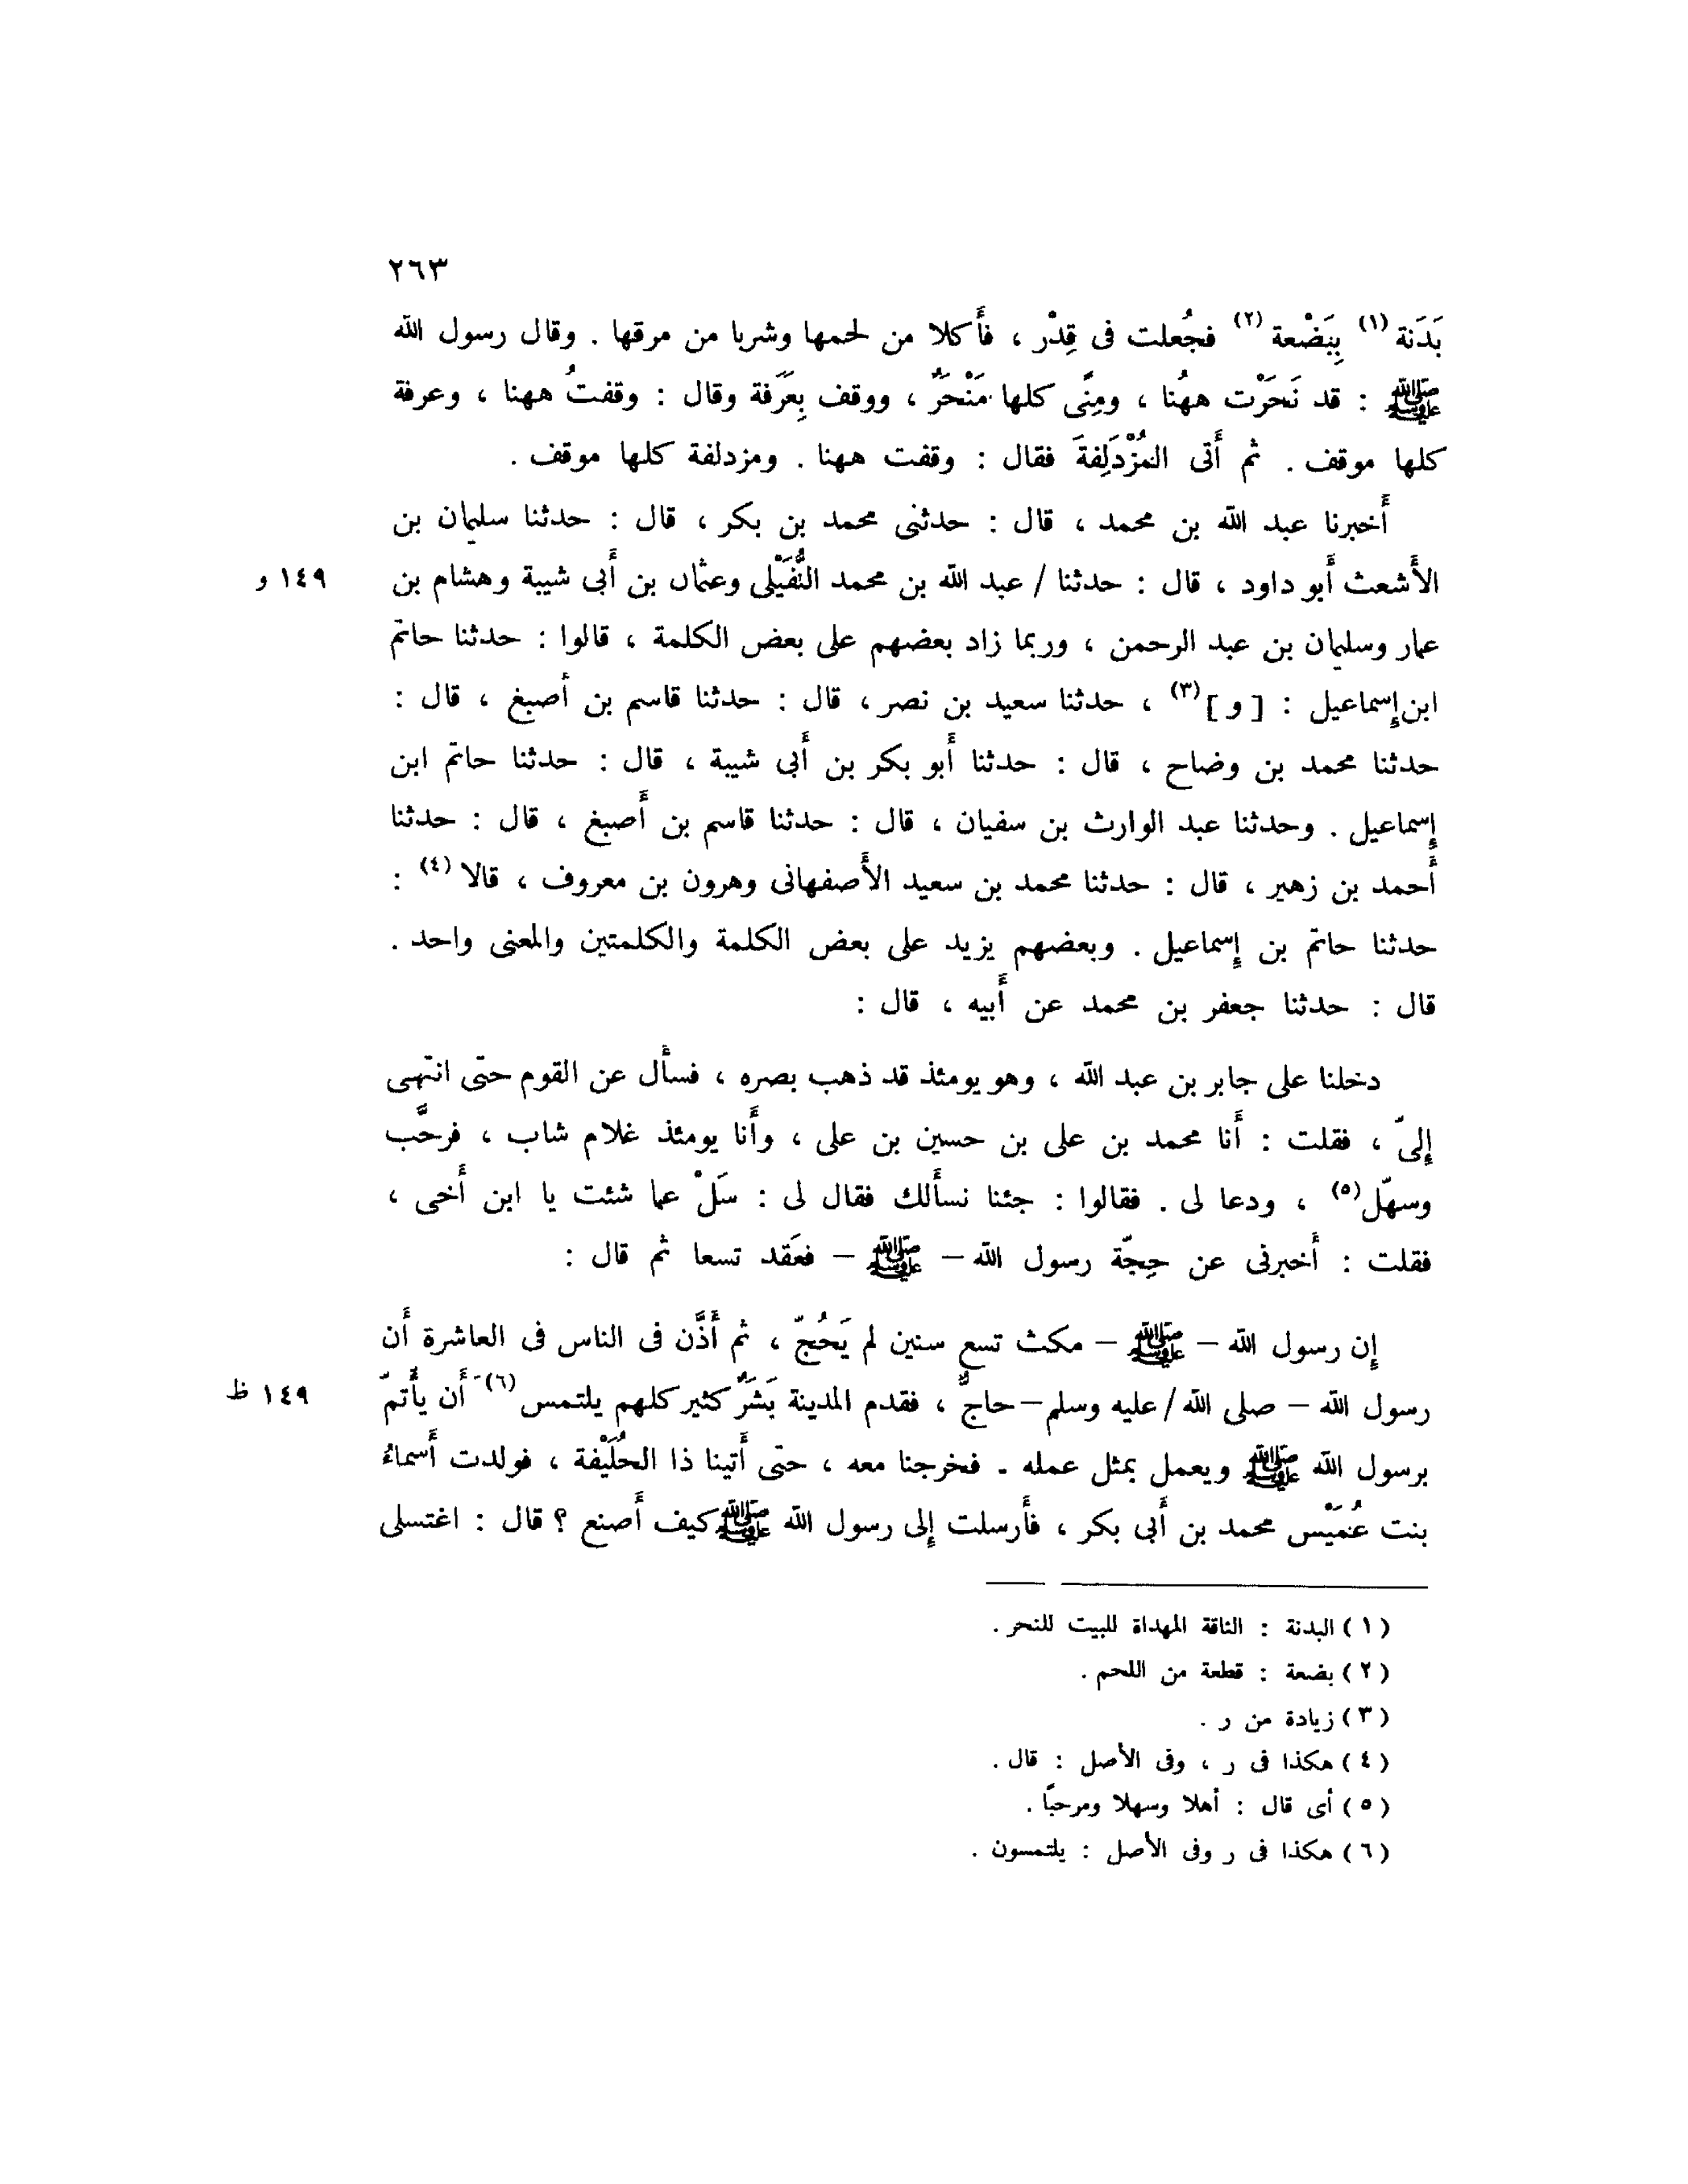 ٢٦٣
بَدَنة (١) بِبَضْعة (٢) فجُعلت فى قِدْر ، فأَكلا من لحمها وشربا من مرقها . وقال رسول الله
ﷺ : قد نَحَرْت ههُنا ، ومِنًى كلها مَنْحَرٌ ، ووقف بِعَرَفة وقال : وقفتُ ههنا ، وعرفة
كلها موقف . ثم أَتى المُزْدَلِفةَ فقال : وقفت ههنا . ومزدلفة كلها موقف .
أَخبرنا عبد الله بن محمد ، قال : حدثنى محمد بن بكر ، قال : حدثنا سليمان بن
الأَشعث أَبو داود ، قال : حدثنا / عبد الله بن محمد النُّفَيْلى وعثمان بن أَبى شيبة وهشام بن ١٤٩ و
عمار وسليمان بن عبد الرحمن ، وربما زاد بعضهم على بعض الكلمة ، قالوا : حدثنا حاتم
ابن إِسماعيل : [ و ] (٣) ، حدثنا سعيد بن نصر ، قال : حدثنا قاسم بن أَصبغ ، قال :
حدثنا محمد بن وضاح ، قال : حدثنا أَبو بكر بن أَبى شيبة ، قال : حدثنا حاتم ابن
إِسماعيل . وحدثنا عبد الوارث بن سفيان ، قال : حدثنا قاسم بن أَصبغ ، قال : حدثنا
أَحمد بن زهير ، قال : حدثنا محمد بن سعيد الأَصفهانى وهرون بن معروف ، قالا (٤) :
حدثنا حاتم بن إِسماعيل . وبعضهم يزيد على بعض الكلمة والكلمتين والمعنى واحد .
قال : حدثنا جعفر بن محمد عن أَبيه ، قال :
دخلنا على جابر بن عبد الله ، وهو يومئذ قد ذهب بصره ، فسأَل عن القوم حتى انتهى
إِلىّ ، فقلت : أَنا محمد بن على بن حسين بن على ، وأَنا يومئذ غلام شاب ، فرحَّب
وسهّل (٥) ، ودعا لى . فقالوا : جئنا نسأَلك فقال لى : سَلْ عما شئت يا ابن أَخى ،
فقلت : أَخبرنى عن حِجّة رسول الله – ﷺ – فعَقد تسعا ثم قال :
إِن رسول الله – ﷺ – مكث تسع سنين لم يَحُجّ ، ثم أَذَّن فى الناس فى العاشرة أَن
رسول الله – صلى الله / عليه وسلم – حاجٌّ ، فقدم المدينة بَشَرٌ كثير كلهم يلتمس (٦) أَن يأْتمّ ١٤٩ ظ
برسول الله ﷺ ويعمل بمثل عمله . فخرجنا معه ، حتى أَتينا ذا الحُلَيْفة ، فولدت أَسماءُ
بنت عُمَيْس محمد بن أَبى بكر ، فأَرسلت إِلى رسول الله ﷺ كيف أَصنع ؟ قال : اغتسلى
( ١ ) البدنة : الناقة المهداة للبيت للنحر .
( ٢ ) بضعة : قطعة من اللحم .
( ٣ ) زيادة من ر .
( ٤ ) هكذا فى ر ، وفى الأصل : قال .
( ٥ ) أى قال : أهلا وسهلا ومرحبًا .
( ٦ ) هكذا فى ر وفى الأصل : يلتمسون .